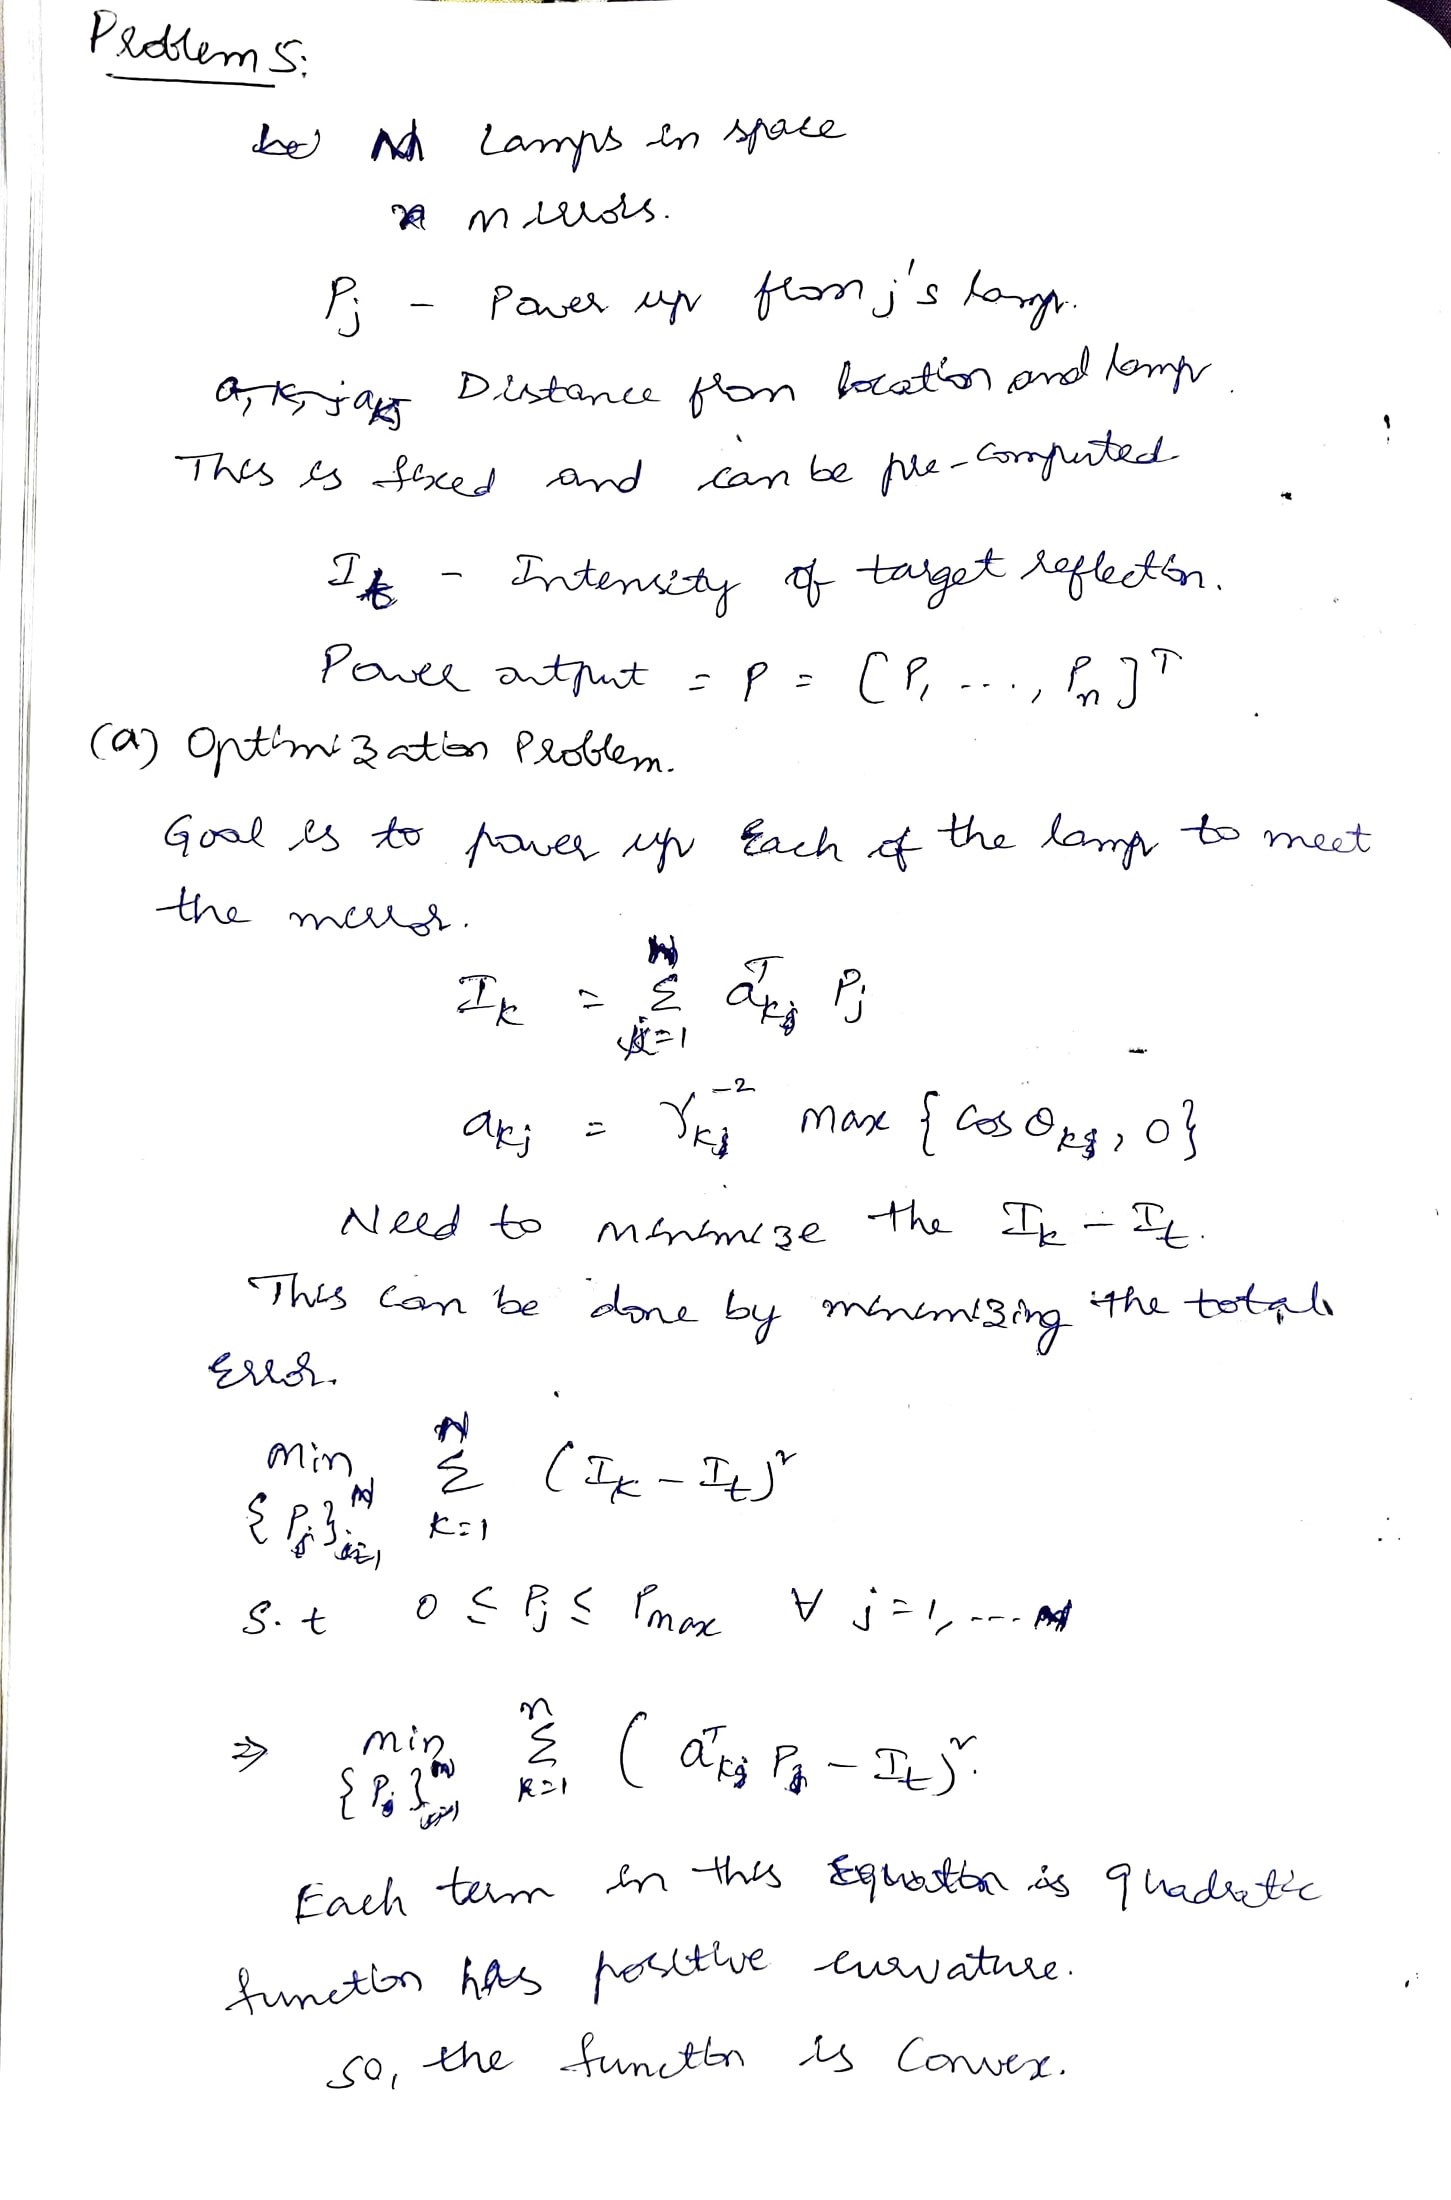 Problem 5:
Lamps in space
mirrors.
P_j - Power up from j's lamp.
a_kj Distance from location and lamp.
This is fixed and can be pre-computed
I_t - Intensity of target reflection.
Power output = P = [P_1 ..., P_n]^T
(a) Optimization Problem.
Goal is to power up Each of the lamp to meet
the mirror.
I_k = Σ_{j=1}^{N} a^T_kj P_j
a_kj = r_kj^{-2} max {cos θ_kj, 0}
Need to minimize the I_k - I_t.
This can be done by minimizing the total
Error.
min_{{P_j}_{j=1}} Σ_{k=1}^{N} (I_k - I_t)^2
S.t 0 ≤ P_j ≤ P_max ∀ j=1, ---
⇒ min_{{P_j}_{j=1}} Σ_{k=1}^{n} (a^T_kj P_j - I_t)^2.
Each term in this Equation is quadratic
function has positive curvature.
so, the function is Convex.